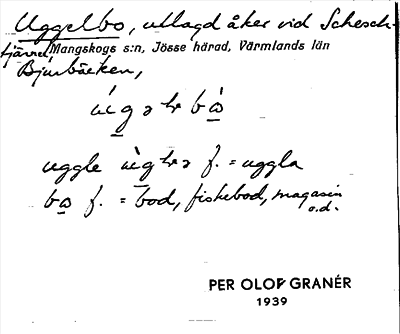 Uggelbo, utlagd åker vid
tjärnet Mangskogs s:n, Jösse härad, Värmlands län
Bjurbäcken,
uggle f. = uggla
f. = bod, fiskebod, magasin
o.d.
PER OLOF GRANÉR
1939